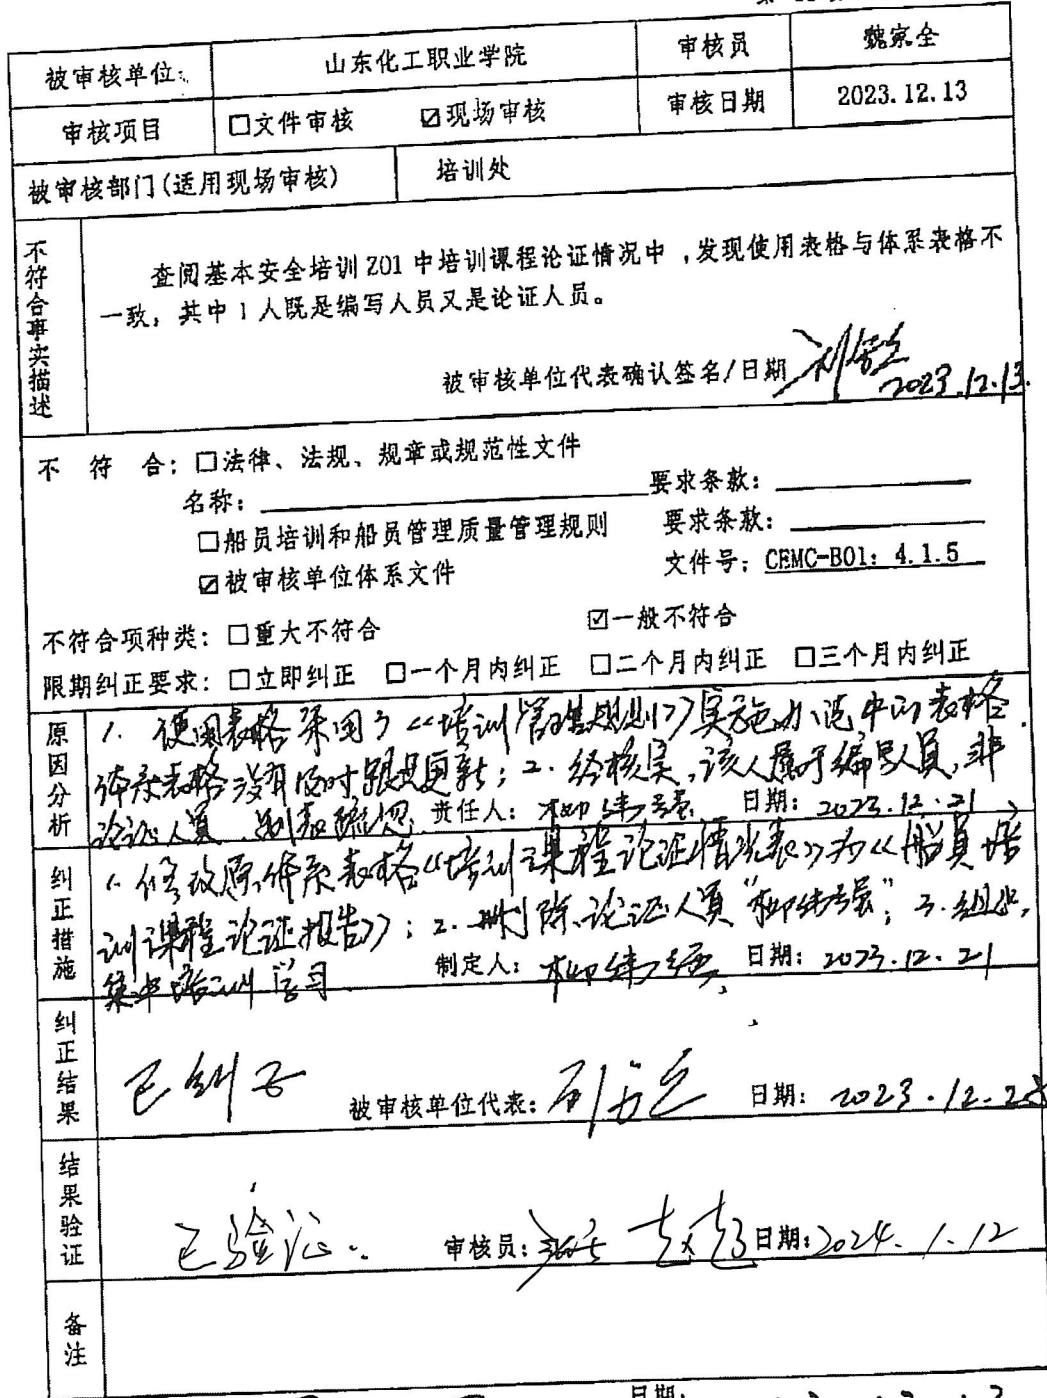 被审核单位: 山东化工职业学院 审核员 魏家全
审核项目 □文件审核 ☑现场审核 审核日期 2023.12.13
被审核部门(适用现场审核) 培训处
不符合事实描述
查阅基本安全培训 Z01 中培训课程论证情况中,发现使用表格与体系表格不
一致,其中 1 人既是编写人员又是论证人员。
被审核单位代表确认签名/日期 2023.12.13.
不 符 合: □法律、法规、规章或规范性文件
名称: 要求条款:
□船员培训和船员管理质量管理规则 要求条款:
☑被审核单位体系文件 文件号: CEMC-B01: 4.1.5
不符合项种类: □重大不符合 ☑一般不符合
限期纠正要求: □立即纠正 □一个月内纠正 □二个月内纠正 □三个月内纠正
原因分析
1. 使用表格采用了《培训管理规则》实施办法中的表格.
体系表格没有及时跟进更新; 2. 经核实,该人属于编写人员,非
论证人员,制表疏忽. 责任人: 日期: 2023.12.21
纠正措施
1. 修改原体系表格《培训课程论证情况表》为《船员培
训课程论证报告》; 2. 删除论证人员 ; 3. 组织
集中培训学习. 制定人: 日期: 2023.12.21
纠正结果
已纠正 被审核单位代表: 日期: 2023.12.25
结果验证
已验证. 审核员: 日期: 2024.1.12
备注
日期: